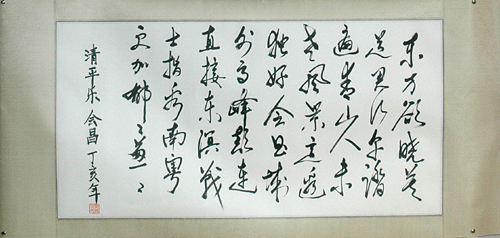 东方欲晓莫
道君行早踏
遍青山人未
老风景这边
独好会昌城
外高峰颠连
直接东溟战
士指看南粤
更加郁々葱々
清平乐 会昌 丁亥年